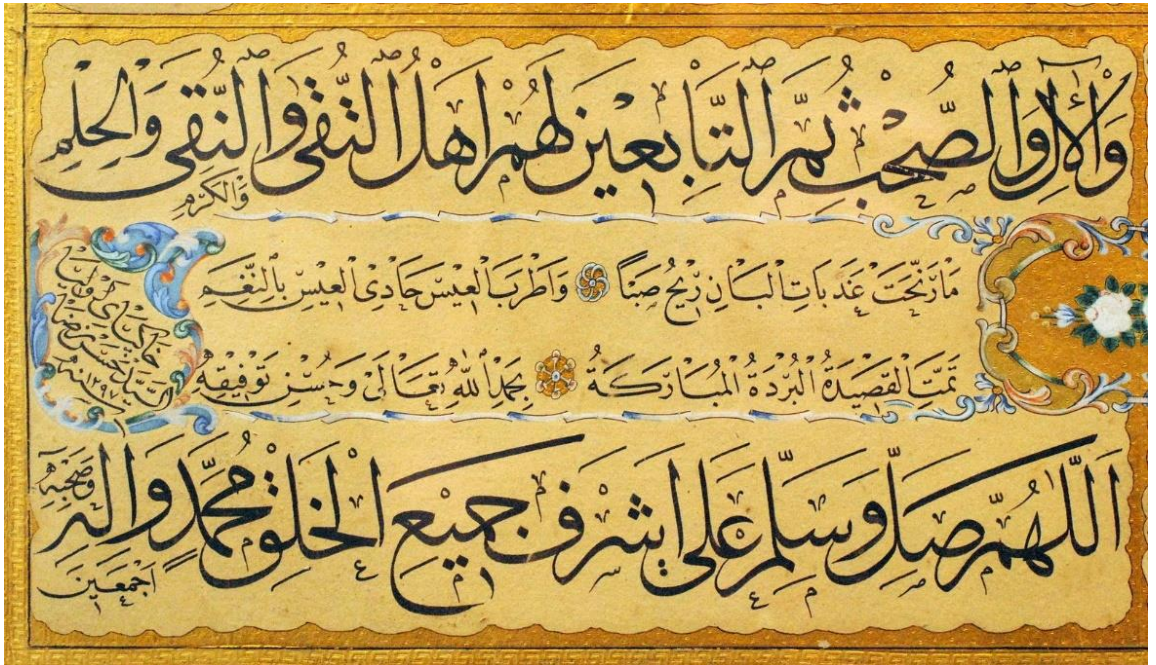 وَالْآلِ وَالصَّحْبِ ثُمَّ التَّابِعِينَ لَهُمْ اَهْلُ التُّقٰى وَالنُّقٰى وَالْحِلْمِ وَالْكَرَمِ
مَارَنَّحَتْ عَذَبَاتِ الْبَانِ رِيحُ صَبًا وَاَطْرَبَ الْعِيسَ حَادِى الْعِيسِ بِالنَّغَمِ
تَمَّتِ الْقَصِيدَةُ الْبُرْدَةُ الْمُبَارَكَةُ بِحَمْدِ اللّٰهِ تَعَالٰى وَحُسْنِ تَوْفِيقِهِ
اَللّٰهُمَّ صَلِّ وَسَلِّمْ عَلٰى اَشْرَفِ جَمِيعِ الْخَلْقِ مُحَمَّدٍ وَاٰلِهِ وَصَحْبِهِ اَجْمَعِينَ
السيد
سنه ١٢٩٧